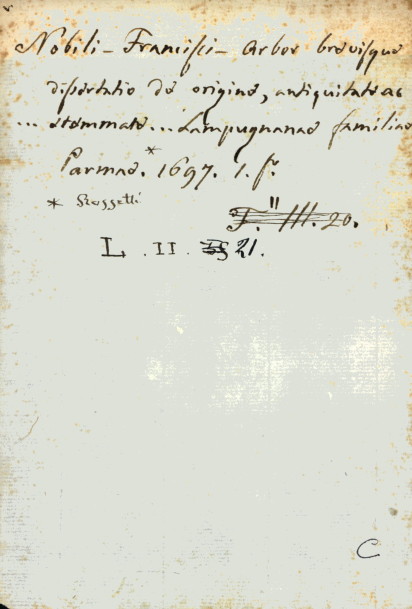 Nobili - Francisci - Arbor brevisque
dissertatio de origine, antiquitate ac
... stemmate ... Lampugnanae familiae
Parmae.* 1697. 1. f.
* Rossetti
F. III. 20.
L. II. 21.
C